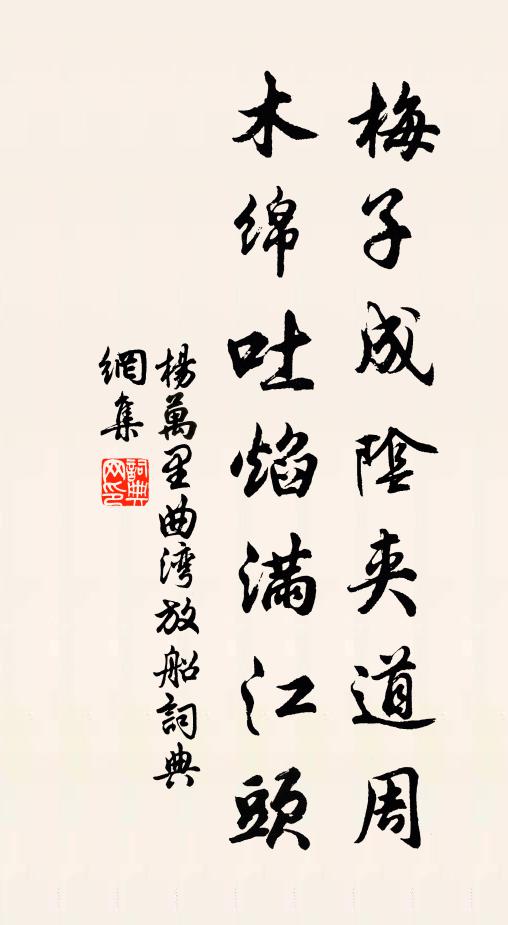 梅子成陰夾道周
木綿吐焰滿江頭
楊萬里曲湾放船詞典
網集
詞典网印